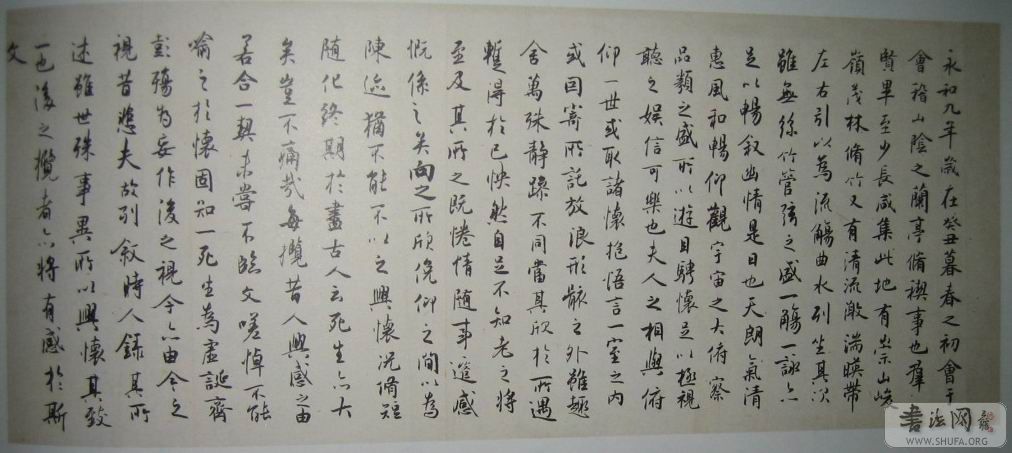 永和九年歲在癸丑暮春之初會于
會稽山陰之蘭亭脩禊事也羣
賢畢至少長咸集此地有崇山峻
嶺茂林脩竹又有清流激湍暎帶
左右引以為流觴曲水列坐其次
雖無絲竹管弦之盛一觴一詠亦
足以暢叙幽情是日也天朗氣清
惠風和暢仰觀宇宙之大俯察
品類之盛所以遊目騁懷足以極視
聽之娛信可樂也夫人之相與俯
仰一世或取諸懷抱悟言一室之內
或因寄所託放浪形骸之外雖趣
舍萬殊靜躁不同當其欣於所遇
蹔得於己怏然自足不知老之將
至及其所之既惓情隨事遷感
慨係之矣向之所欣俛仰之間以為
陳迹猶不能不以之興懷況脩短
隨化終期於盡古人云死生亦大
矣豈不痛哉每攬昔人興感之由
若合一契未嘗不臨文嗟悼不能
喻之於懷固知一死生為虛誕齊
彭殤為妄作後之視今亦由今之
視昔悲夫故列叙時人錄其所
述雖世殊事異所以興懷其致
一也後之攬者亦將有感於斯
文
书法网
WWW.SHUFA.ORG